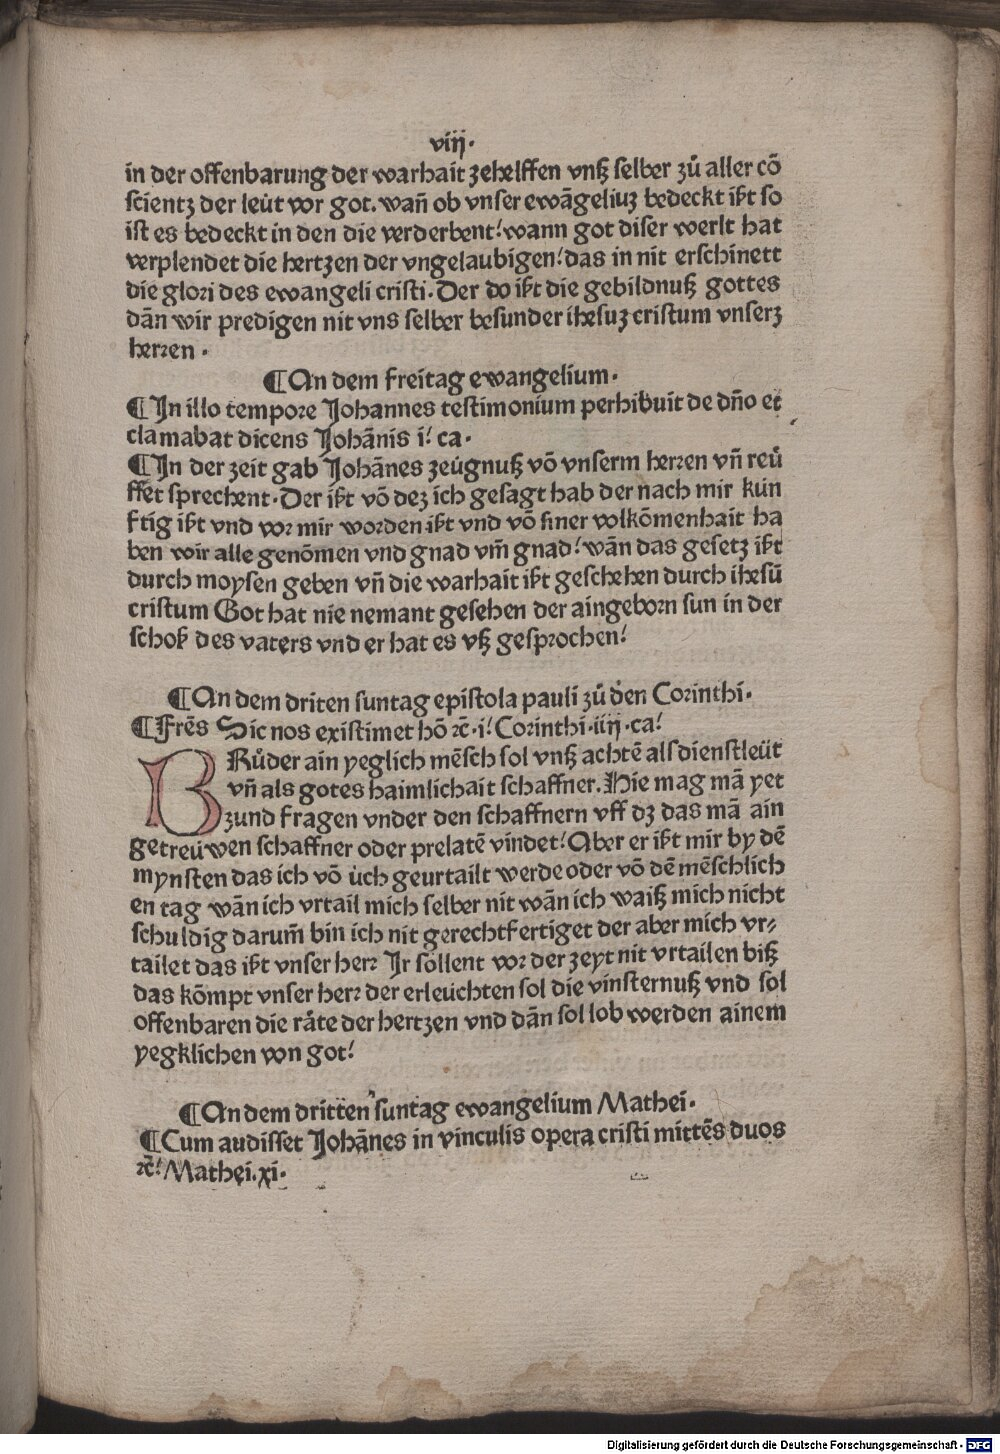 viij.
in der offenbarung der warhait zehelffen vnß selber zů aller cō
scientz der leüt vor got. wañ ob vnser ewāgeliuz bedeckt ißt so
ist es bedeckt in den die verderbent! wann got diser werlt hat
verplendet die hertzen der vngelaubigen! das in nit erschinett
die glori des ewangeli cristi. Der do ißt die gebildnuß gottes
dān wir predigen nit vns selber besunder ihesuz cristum vnserz
herren.
¶An dem freitag ewangelium.
¶In illo tempore Johannes testimonium perhibuit de dño et
clamabat dicens Johānis i! ca.
¶In der zeit gab Johānes zeügnuß vō vnserm herren vñ reü
ffet sprechent. Der ißt vō dez ich gesagt hab der nach mir kün
ftig ißt vnd vor mir worden ißt vnd vō siner volkōmenhait ha
ben wir alle genōmen vnd gnad vm̄ gnad! wān das gesetz ißt
durch moysen geben vñ die warhait ißt geschehen durch ihesū
cristum Got hat nie nemant gesehen der aingeborn sun in der
schoß des vaters vnd er hat es vß gesprochen!
¶An dem driten suntag epistola pauli zů den Corinthi.
¶Frēs Sic nos existimet hō ꝛc̄. i! Corinthi. iiij. ca!
BRůder ain yeglich mēsch sol vnß achtē als dienstleüt
vñ als gotes haimlichait schaffner. Hie mag mā yet
zund fragen vnder den schaffnern vff dz das mā ain
getreüwen schaffner oder prelatē vindet! Aber er ißt mir by dē
mynsten das ich vō üch geurtailt werde oder vō dē mēschlich
en tag wān ich vrtail mich selber nit wān ich waiß mich nicht
schuldig darum̄ bin ich nit gerechtfertiget der aber mich vr⸗
tailet das ißt vnser herr Ir sollent vor der zeyt nit vrtailen biß
das kōmpt vnser herr der erleüchten sol die vinsternuß vnd sol
offenbaren die räte der hertzen vnd dān sol lob werden ainem
yegklichen von got!
¶An dem dritten suntag ewangelium Mathei.
¶Cum audisset Johānes in vinculis opera cristi mittēs duos
ꝛc̄! Mathei. xi.
Digitalisierung gefördert durch die Deutsche Forschungsgemeinschaft - DFG